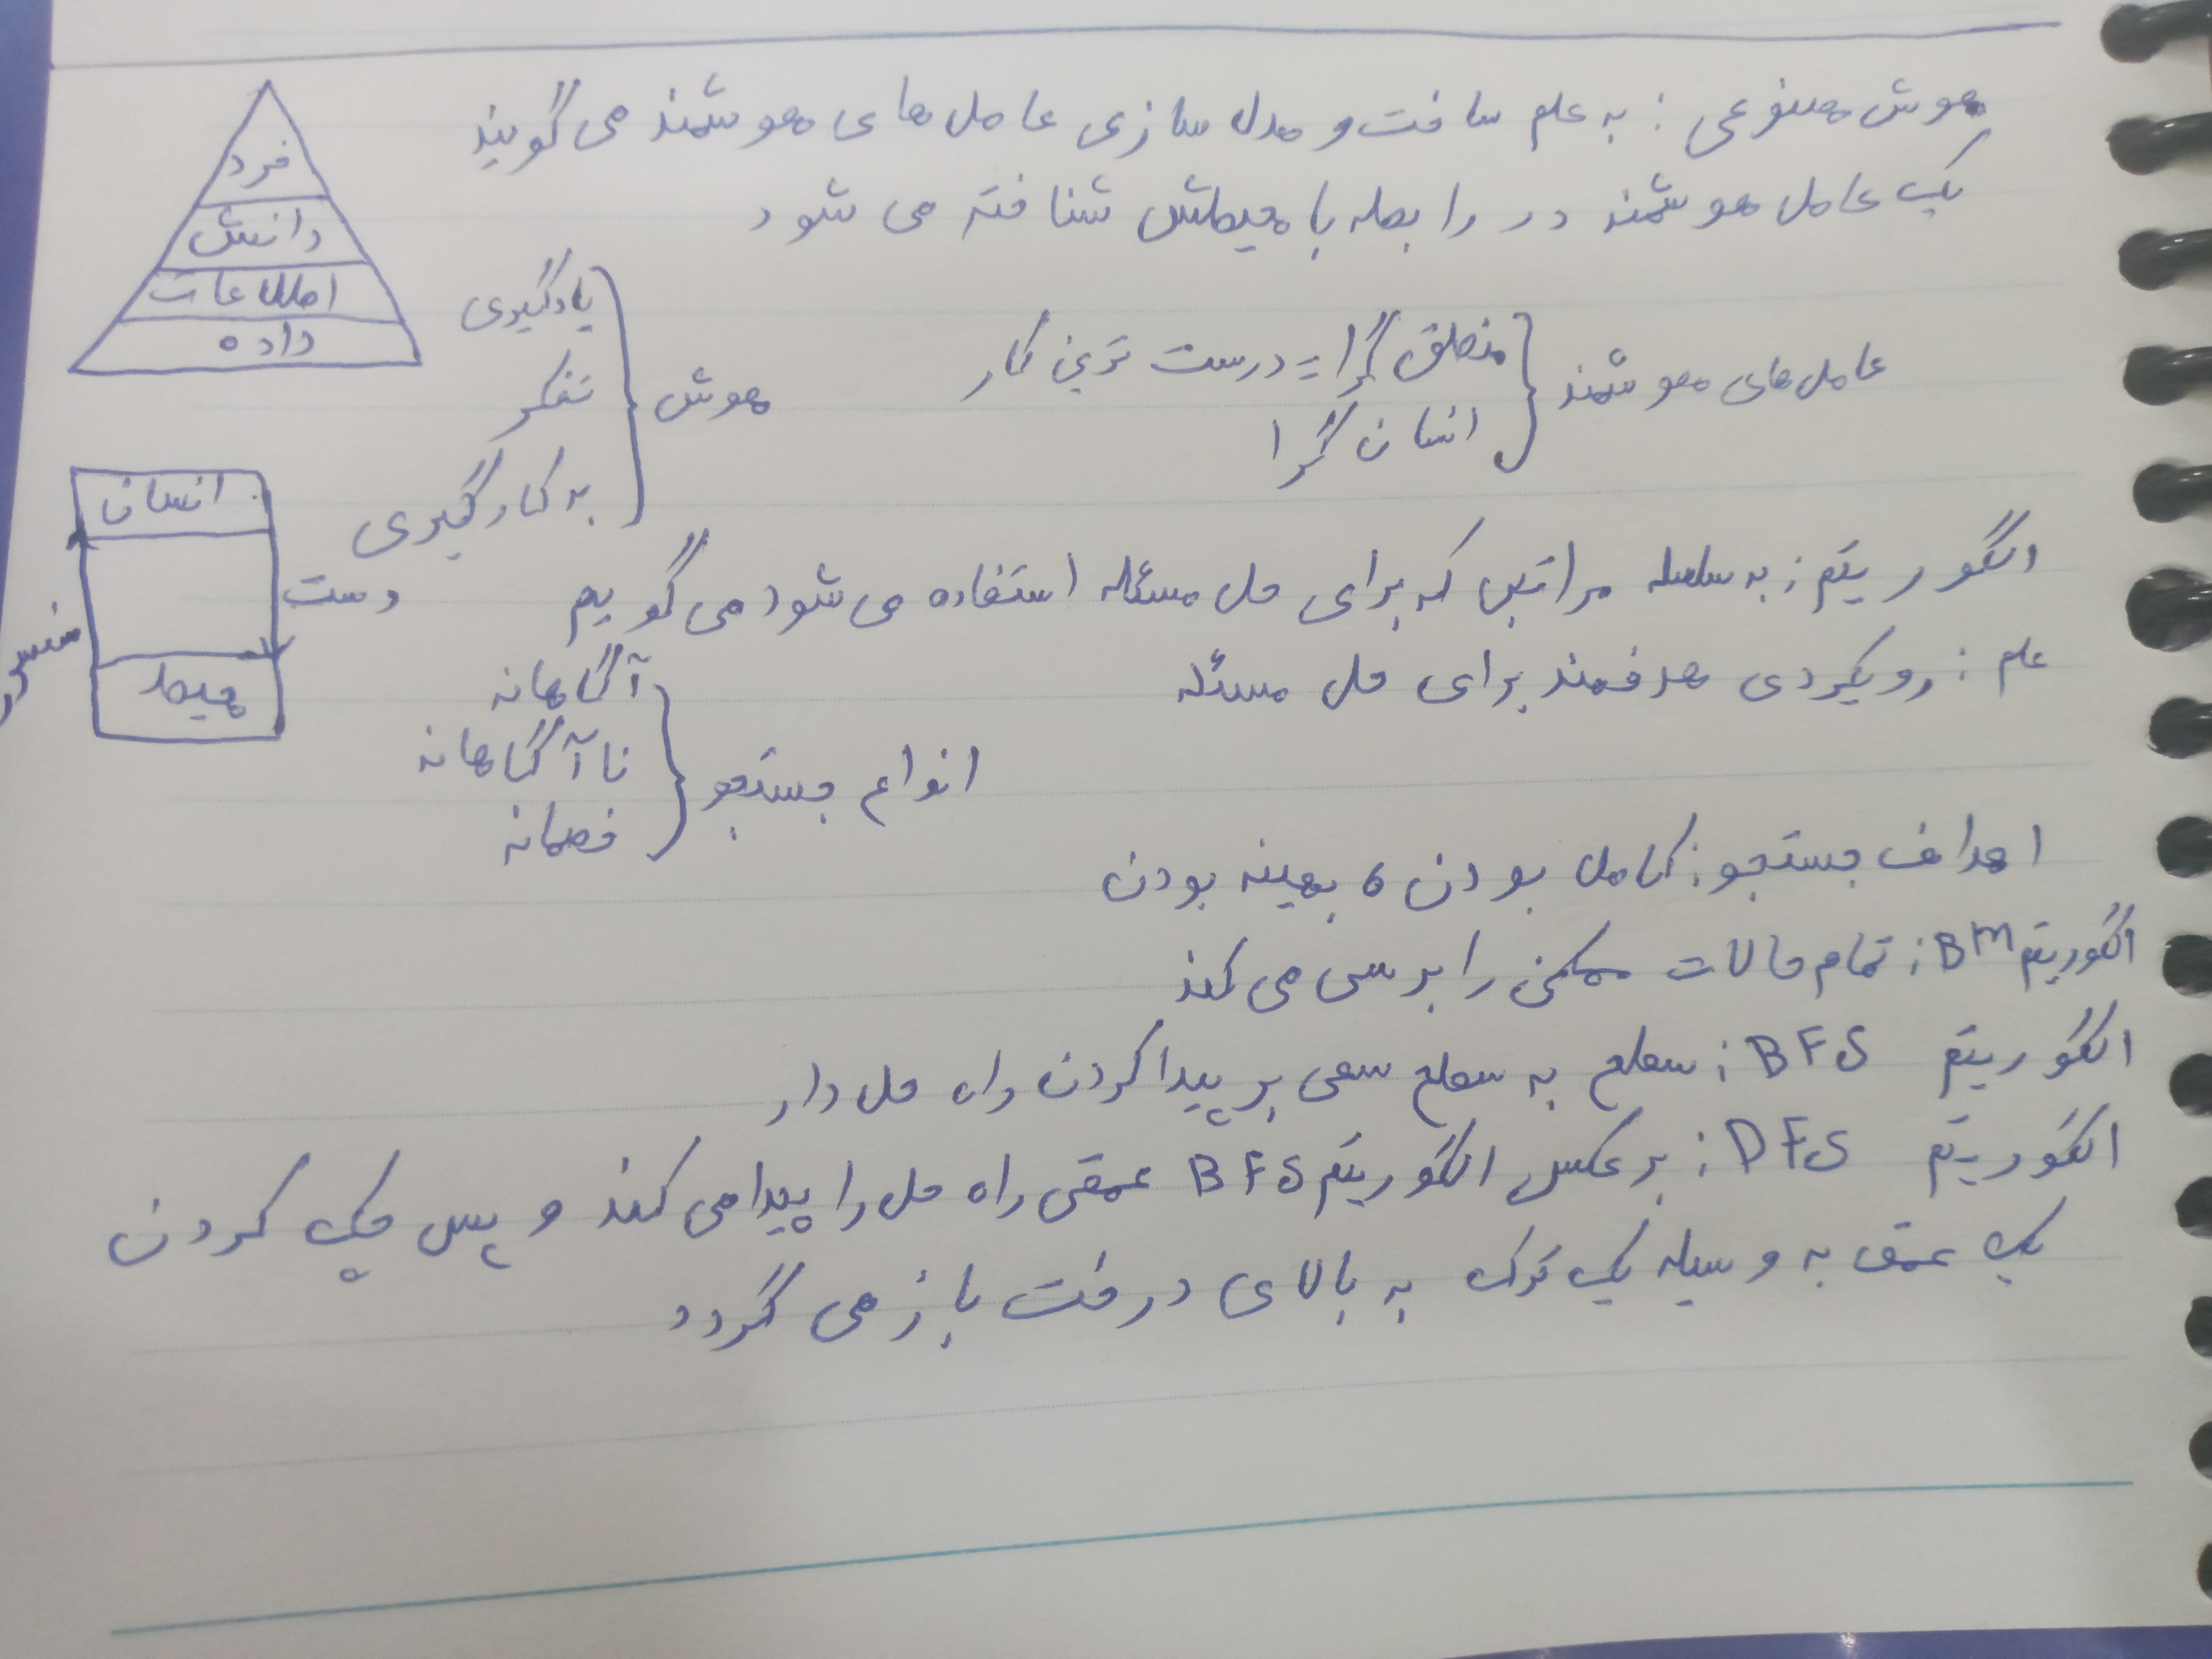 هوش مصنوعی : به علم ساخت و مدل سازی عامل های هوشمند می گویند
یک عامل هوشمند در رابطه با محیطش شناخته می شود
خرد
دانش
اطلاعات
داده
عامل های هوشمند
منطق گرا = درست ترین کار
انسان گرا
هوش
یادگیری
تفکر
به کارگیری
انسان
دست
محیط
الگوریتم : به سلسله مراتبی که برای حل مسئله استفاده می شود می گویم
علم : رویکردی هدفمند برای حل مسئله
انواع جستجو
آگاهانه
ناآگاهانه
خصمانه
اهداف جستجو : کامل بودن ، بهینه بودن
الگوریتم BM : تمام حالات ممکن را بررسی می کند
الگوریتم BFS : سطح به سطح سعی بر پیدا کردن راه حل دارد
الگوریتم DFS : برعکس الگوریتم BFS عمقی راه حل را پیدا می کند و پس چک کردن
یک عمق به وسیله یک ترک به بالای درخت باز می گردد